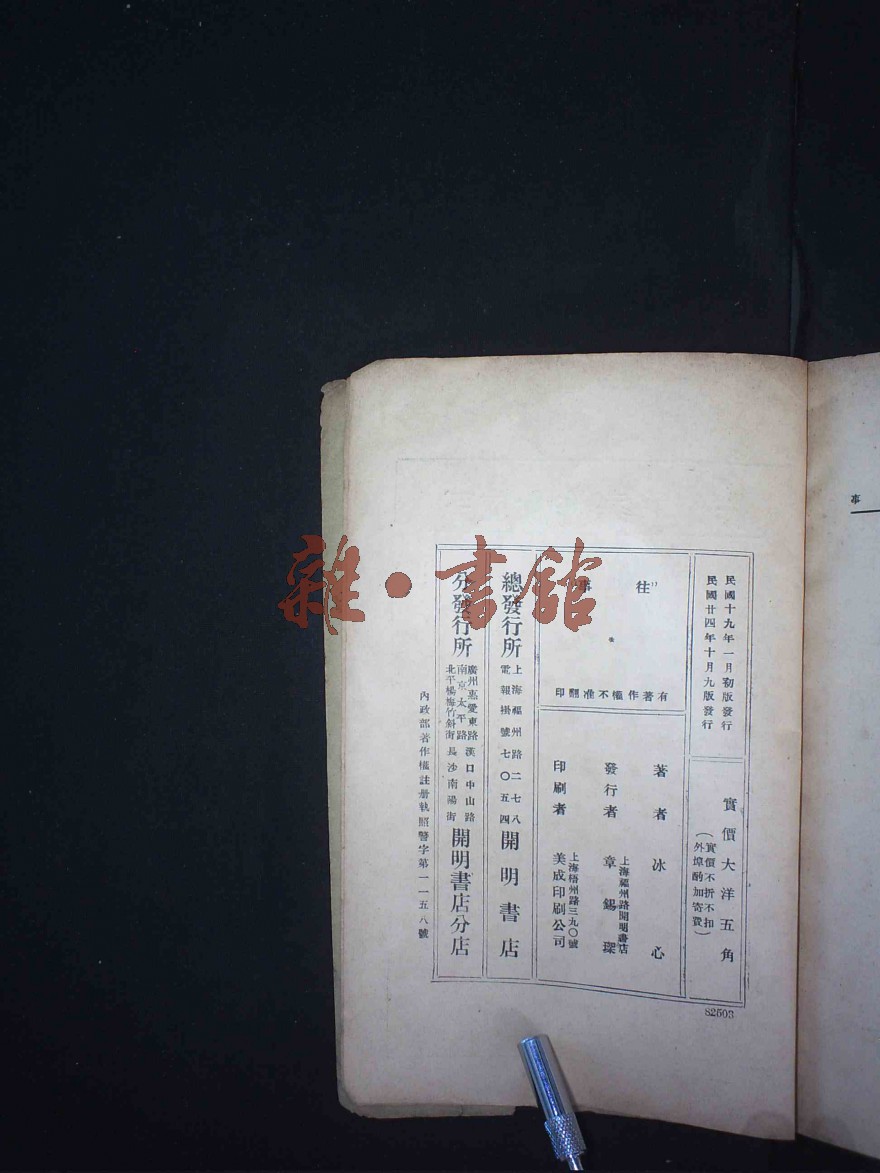 民國十九年一月初版發行
民國廿四年十月九版發行
實價大洋五角
(實價不折不扣
外埠酌加寄費)
往事
有著作權不准翻印
著者 冰心
發行者 章錫琛
上海福州路開明書店
印刷者 美成印刷公司
上海梧州路三九〇號
總發行所 開明書店
上海福州路二七八
電報掛號七〇五四
分發行所 開明書店分店
廣州惠愛東路 漢口中山路
南京太平路
北平楊梅竹斜街 長沙南陽街
內政部著作權註册執照警字第一一五八號
82503
事
雜·書館